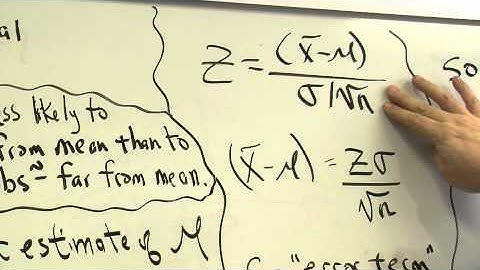 al
ss likely to
from mean than to
obs~ far from mean.
estimate of μ
Z = (x̄-μ) / σ/√n
(x̄-μ) = Zσ / √n
"error term"
so